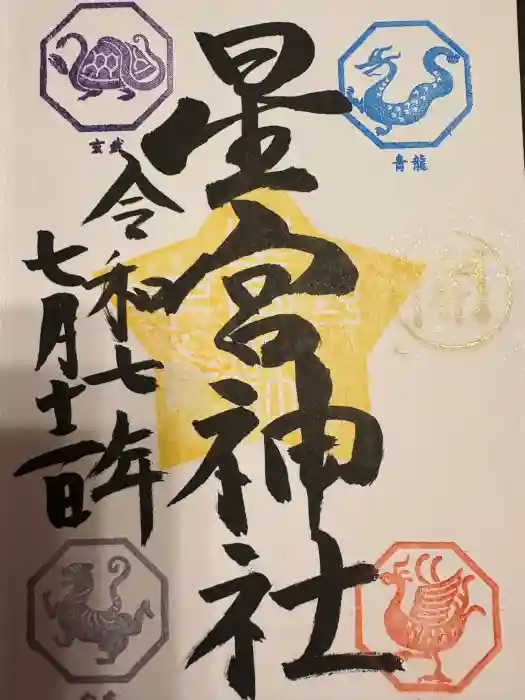 星宮神社
令和七年
七月十一日
玄武
青龍